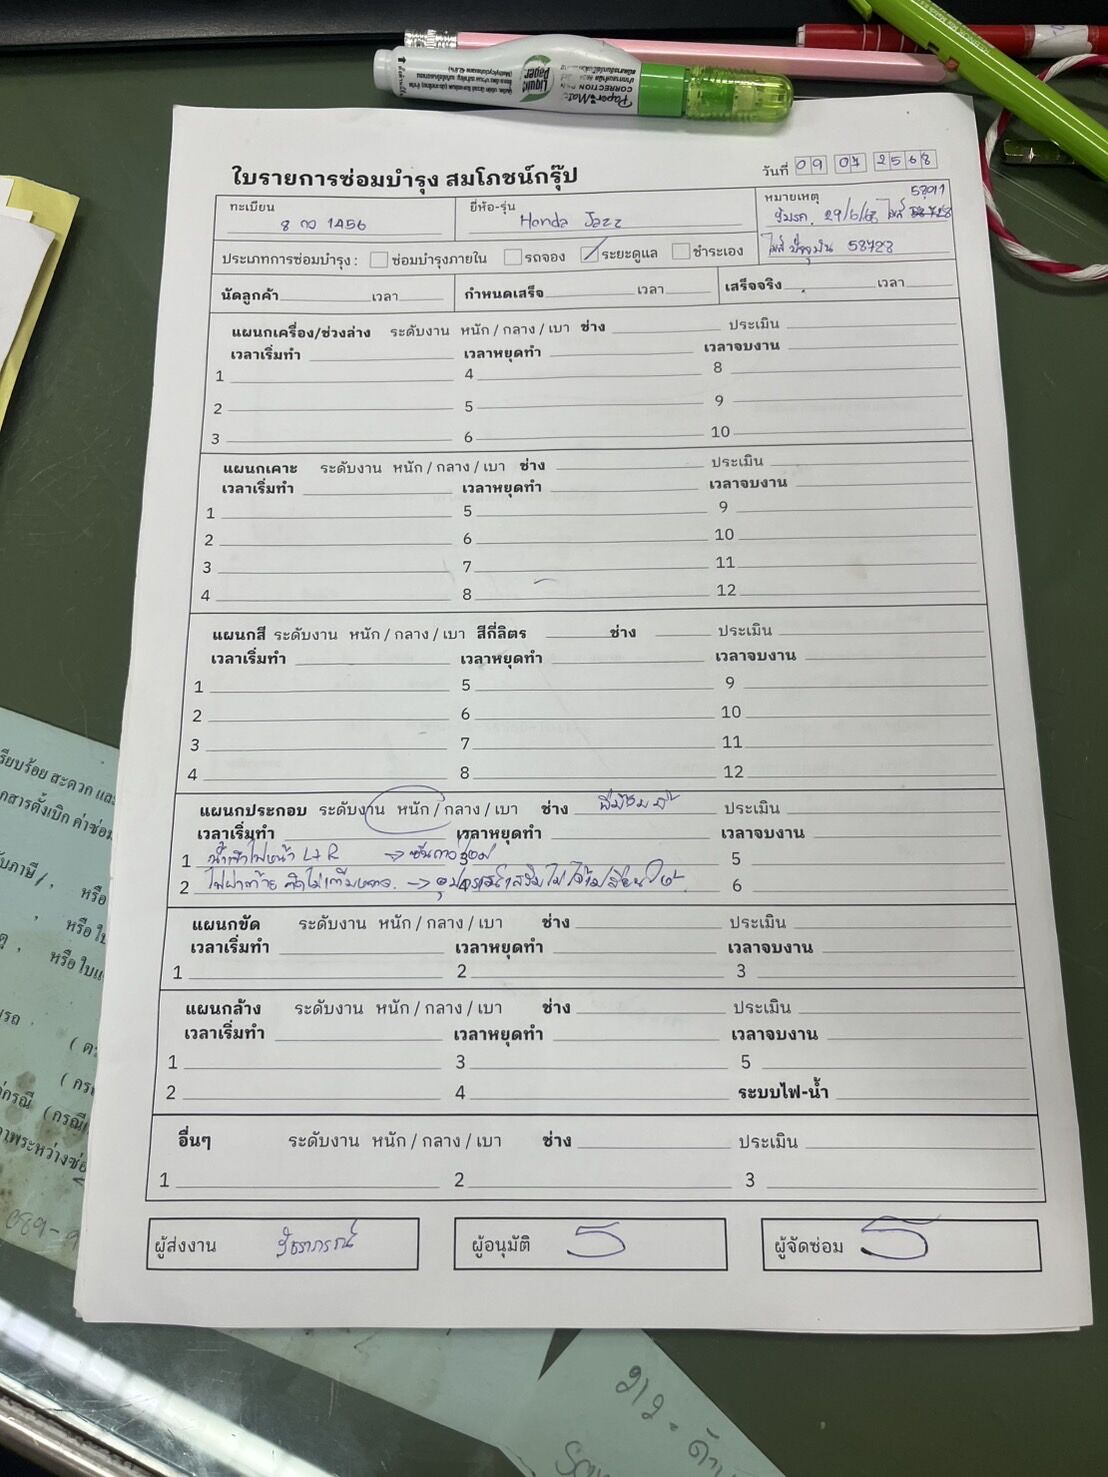 Liquid Paper
Paper Mate
CORRECTION PEN
ใบรายการซ่อมบำรุง สมโภชน์กรุ๊ป
วันที่ 09 07 2568
ทะเบียน
8 กว 1456
ยี่ห้อ-รุ่น
Honda Jazz
หมายเหตุ
53011
29/6/68 ไมล์
ไมล์ปัจจุบัน 53728
ประเภทการซ่อมบำรุง : ซ่อมบำรุงภายใน รถจอง ระยะดูแล ชำระเอง
นัดลูกค้า เวลา กำหนดเสร็จ เวลา เสร็จจริง เวลา
แผนกเครื่อง/ช่วงล่าง ระดับงาน หนัก / กลาง / เบา ช่าง ประเมิน
เวลาเริ่มทำ เวลาหยุดทำ เวลาจบงาน
1 4 8
2 5 9
3 6 10
แผนกเคาะ ระดับงาน หนัก / กลาง / เบา ช่าง ประเมิน
เวลาเริ่มทำ เวลาหยุดทำ เวลาจบงาน
1 5 9
2 6 10
3 7 11
4 8 12
แผนกสี ระดับงาน หนัก / กลาง / เบา สีกี่ลิตร ช่าง ประเมิน
เวลาเริ่มทำ เวลาหยุดทำ เวลาจบงาน
1 5 9
2 6 10
3 7 11
4 8 12
แผนกประกอบ ระดับงาน หนัก / กลาง / เบา ช่าง ประเมิน
เวลาเริ่มทำ เวลาหยุดทำ เวลาจบงาน
1 น้ำเข้าไฟหน้า L+R → 3 5
2 4 6
แผนกขัด ระดับงาน หนัก / กลาง / เบา ช่าง ประเมิน
เวลาเริ่มทำ เวลาหยุดทำ เวลาจบงาน
1 2 3
แผนกล้าง ระดับงาน หนัก / กลาง / เบา ช่าง ประเมิน
เวลาเริ่มทำ เวลาหยุดทำ เวลาจบงาน
1 3 5
2 4 ระบบไฟ-น้ำ
อื่นๆ ระดับงาน หนัก / กลาง / เบา ช่าง ประเมิน
1 2 3
ผู้ส่งงาน
ผู้อนุมัติ
ผู้จัดซ่อม